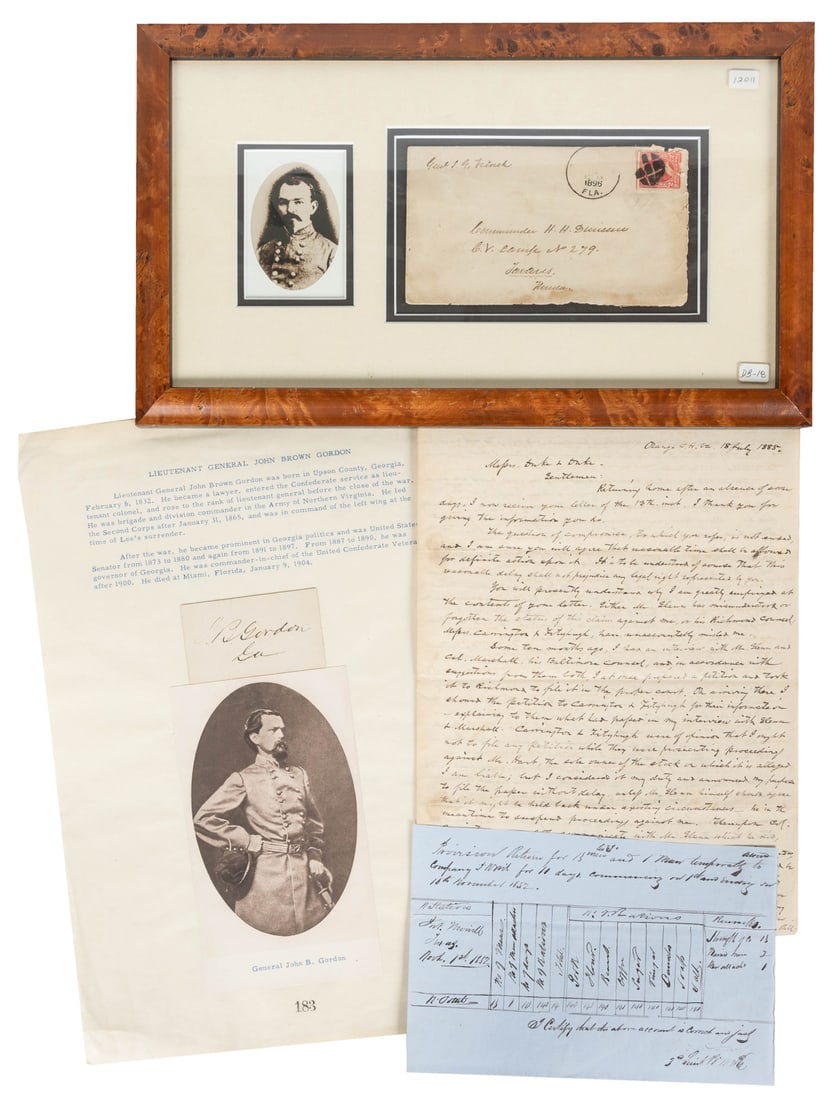 12011
Genl J. G.
1896
FLA.
Commander H. H. Duncan
C. V. Camp No 279.
Tavares.
Florida
DB-18
LIEUTENANT GENERAL JOHN BROWN GORDON
Lieutenant General John Brown Gordon was born in Upson County, Georgia,
February 6, 1832. He became a lawyer, entered the Confederate service as lieu-
tenant colonel, and rose to the rank of lieutenant general before the close of the war.
He was brigade and division commander in the Army of Northern Virginia. He led
the Second Corps after January 31, 1865, and was in command of the left wing at the
time of Lee's surrender.
After the war, he became prominent in Georgia politics and was United States
Senator from 1873 to 1880 and again from 1891 to 1897. From 1867 to 1890, he was
governor of Georgia. He was commander-in-chief of the United Confederate Veterans
after 1900. He died at Miami, Florida, January 9, 1904.
J B Gordon
Ga
General John B. Gordon
183
Orange C.H. Va 18 July 1885.
Messrs. Duke & Duke.
Gentlemen:
Returning home after an absence of some
days, I now receive your letter of the 13th inst. I thank you for
giving the information you do.
The question of compromise, to which you refer, is not ended,
and I am sure you will agree that reasonable time shall be afforded
for definite action upon it. It is to be understood of course that this
reasonable delay shall not prejudice any legal right represented by you.
You will presently understand why I am greatly surprised at
the contents of your letter. Either Mr. Glenn has misunderstood or
forgotten the status of this claim against me, or his Richmond Counsel,
Messrs. Carrington & Fitzhugh, have unaccountably misled me.
Some ten months ago, I had an interview with Mr. Glenn and
Col. Marshall, his Baltimore Counsel, and in accordance with
suggestions from them both I at once prepared a petition and took
it to Richmond to file it in the proper court. On arriving there I
showed the petition to Carrington & Fitzhugh for their information
- explaining to them what had passed in my interview with Glenn
& Marshall. Carrington & Fitzhugh were of opinion that I ought
not to file any petition while they were prosecuting proceeding
against Mr. Hart, the sole owner of the stock on which it is alleged
I am liable; but I considered it my duty and announced my purpose
to file the paper without delay, unless Mr. Glenn himself should agree
that it might be held back under existing circumstances - he in the
meantime to suspend proceedings against me. Thereupon Col.
communicate with Mr. Glenn which he did,
Provision Return for 13 men and 1 Man temporarily
Company I for 10 days commencing on 1st and ending
10th November 1852
Stations
No of Rations
Remarks
Fort Merrill
Texas
Novr. 1st 1852
No of Men
No of days
No of Rations
Total
Pork
Flour
Bread
Coffee
Sugar
Vinegar
Candles
Soap
Salt
13
2
1
I Certify that the above account is correct and just